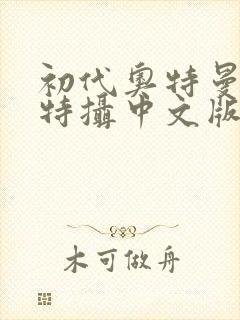 初代奥特曼
特攝中文版
木可做舟